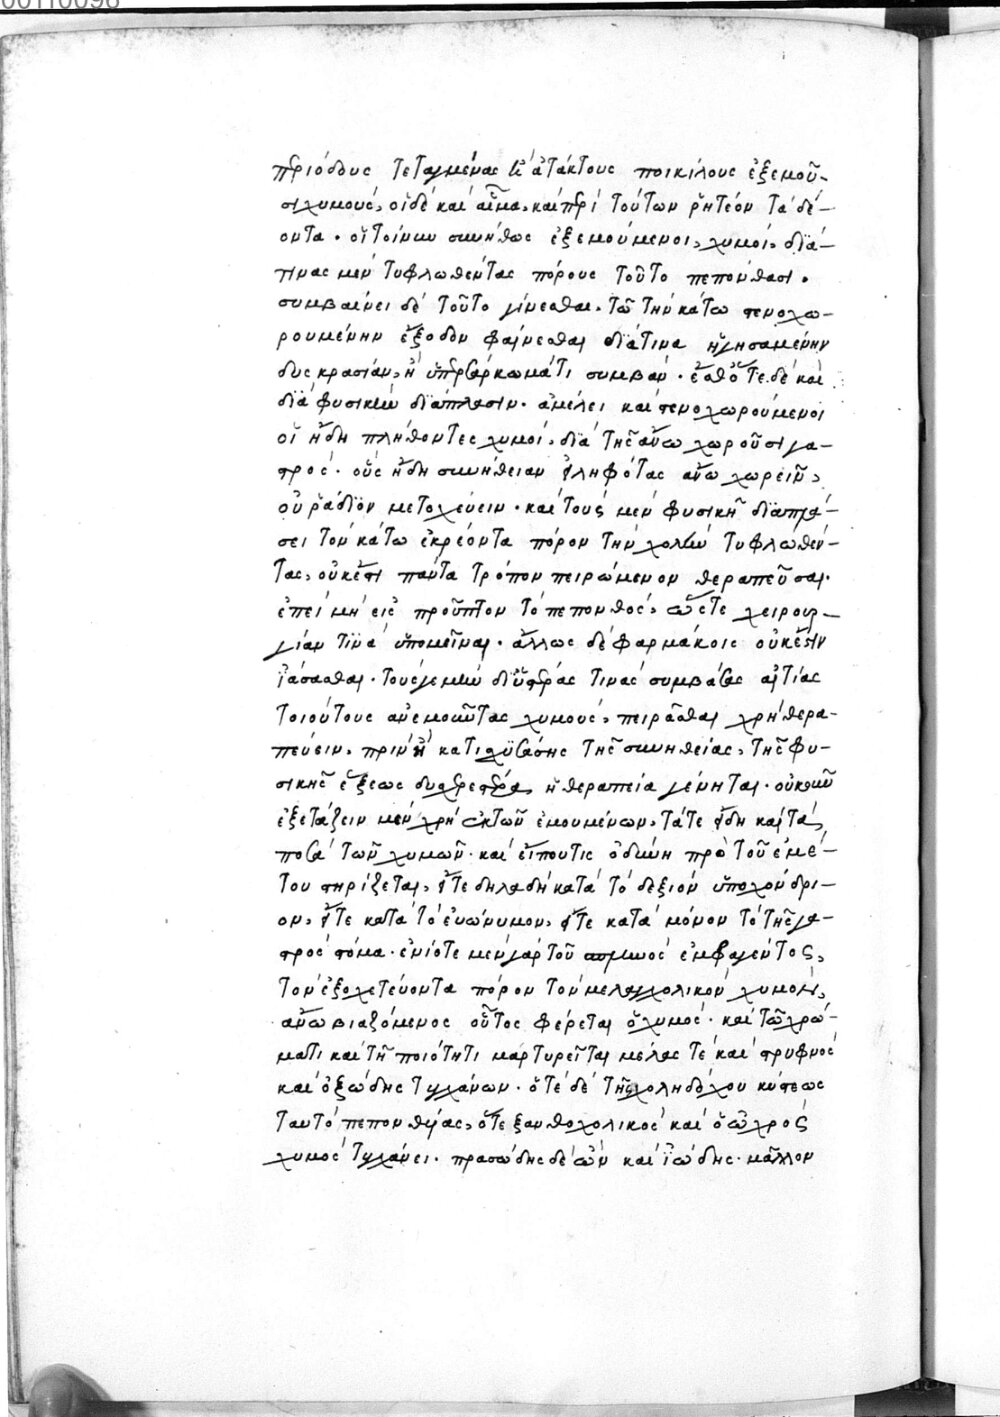 00110098
περιόδους τεταγμένας ἢ ἀτάκτους ποικίλους ἐξεμοῦ-
σι χυμούς, οἱ δὲ καὶ αἷμα, καὶ περὶ τούτων ῥητέον τὰ δέ-
οντα. οἱ τοίνυν συνήθως ἐξεμούμενοι, χυμοὶ, διά-
τινας μὲν τυφλωθέντας πόρους τοῦτο πεπόνθασι.
συμβαίνει δὲ τοῦτο γίνεσθαι. τῶ τὴν κάτω στενοχω-
ρουμένην ἔξοδον φαίνεσθαι διά τινα ἡγησαμένην
δυσκρασίαν, ἢ ὑπερσάρκωμά τι συμβάν. ἔσθ' ὅτε δὲ καὶ
διὰ φυσικὴν διάπλασιν. ἀμέλει καὶ στενοχωρούμενοι
οἱ ἤδη πλήθοντες χυμοὶ, διὰ τῆς ἄνω χωροῦσι γα-
στρός. οὓς ἤδη συνήθειαν εἰληφότας ἄνω χωρεῖν,
οὐ ῥάδιον μετοχεύειν. καὶ τοὺς μὲν φυσικῇ διαπλά-
σει τὸν κάτω ἐκρέοντα πόρον τὴν χολὴν τυφλωθέν-
τας, οὐκ ἔστι πάντα τρόπον πειρώμενον θεραπεῦσαι.
ἐπεὶ μὴ εἰς προῦπτον τὸ πεπονθός, ὥστε χειρουρ-
γίαν τινὰ ὑπομεῖναι. ἄλλως δὲ φαρμάκοις οὐκ ἔστιν
ἰάσασθαι. τούς γε μὴν δι' ἑτέρας τινὰς συμβάσας αἰτίας
τοιούτους ἀνεμοῦντας χυμούς, πειρᾶσθαι χρὴ θερα-
πεύειν, πρὶν ἢ κατισχυσάσης τῆς συνηθείας, τῆς φυ-
σικῆς ἕξεως δυσχερεστέρα, ἡ θεραπεία γένηται. οὐκοῦν
ἐξετάζειν μὲν χρὴ ἐκ τῶν ἐμουμένων, τά τε εἴδη καὶ τὰ
ποσὰ τῶν χυμῶν. καὶ εἴπου τις ὀδύνη πρὸ τοῦ ἐμέ-
του στηρίζεται, εἴτε δηλαδὴ κατὰ τὸ δεξιὸν ὑποχόνδρι-
ον, εἴτε κατὰ τὸ εὐώνυμον, εἴτε κατὰ μόνον τὸ τῆς γα-
στρὸς στόμα. ἐνίοτε μὲν γὰρ τοῦ σπληνὸς ἐμφαγέντος,
τὸν ἐξοχετεύοντα πόρον τὸν μελαγχολικὸν χυμὸν,
ἄνω βιαζόμενος οὗτος φέρεται ὁ χυμός. καὶ τῶ χρώ-
ματι καὶ τῇ ποιότητι μαρτυρεῖται μέλας τὲ καὶ στρυφνὸς
καὶ ὀξώδης τυγχάνων. ὁτὲ δὲ τῆς χοληδόχου κύστεως
ταυτὸ πεπονθυίας, ὅτε ξανθοχολικὸς καὶ ὁ ὠχρὸς
χυμὸς τυγχάνει. πρασώδης δὲ ὢν καὶ ἰώδης. μᾶλλον